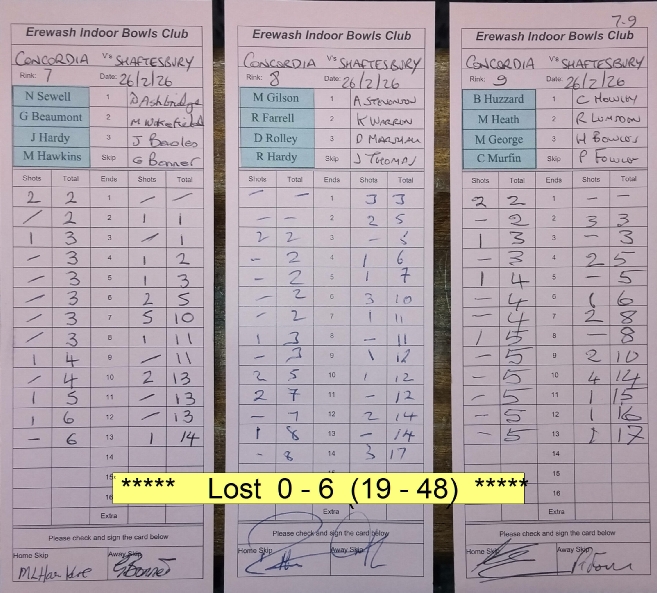 7-9
Erewash Indoor Bowls Club
CONCORDIA V's SHAFTESBURY
Rink: 7 Date: 26/2/26
N Sewell 1 D Ashbridge
G Beaumont 2 M Wakefield
J Hardy 3 J Beales
M Hawkins Skip G Bonner
Shots Total Ends Shots Total
2 2 1 - -
- 2 2 1 1
1 3 3 - 1
- 3 4 1 2
- 3 5 1 3
- 3 6 2 5
- 3 7 5 10
- 3 8 1 11
1 4 9 - 11
- 4 10 2 13
1 5 11 - 13
1 6 12 - 13
- 6 13 1 14
14
15
16
Extra
Please check and sign the card below
Home Skip Away Skip
G Bonner
Erewash Indoor Bowls Club
CONCORDIA V's SHAFTESBURY
Rink: 8 Date: 26/2/26
M Gilson 1 A STEVENSON
R Farrell 2 K WARREN
D Rolley 3 D MARSHAM
R Hardy Skip J THOMAS
Shots Total Ends Shots Total
- - 1 3 3
- - 2 2 5
2 2 3 - 5
- 2 4 1 6
- 2 5 1 7
- 2 6 3 10
- 2 7 1 11
1 3 8 - 11
- 3 9 1 12
2 5 10 1 12
2 7 11 - 12
- 7 12 2 14
1 8 13 - 14
- 8 14 3 17
Extra
Please check and sign the card below
Home Skip Away Skip
Erewash Indoor Bowls Club
CONCORDIA V's SHAFTESBURY
Rink: 9 Date: 26/2/26
B Huzzard 1 C HOWLEY
M Heath 2 R LONDON
M George 3 H BOWLES
C Murfin Skip P FOWLER
Shots Total Ends Shots Total
2 2 1 - -
- 2 2 3 3
1 3 3 - 3
- 3 4 2 5
1 4 5 - 5
- 4 6 1 6
- 4 7 2 8
1 5 8 - 8
- 5 9 2 10
- 5 10 4 14
- 5 11 1 15
- 5 12 1 16
- 5 13 1 17
14
15
16
Extra
Please check and sign the card below
Home Skip Away Skip
***** Lost 0 - 6 (19 - 48) *****